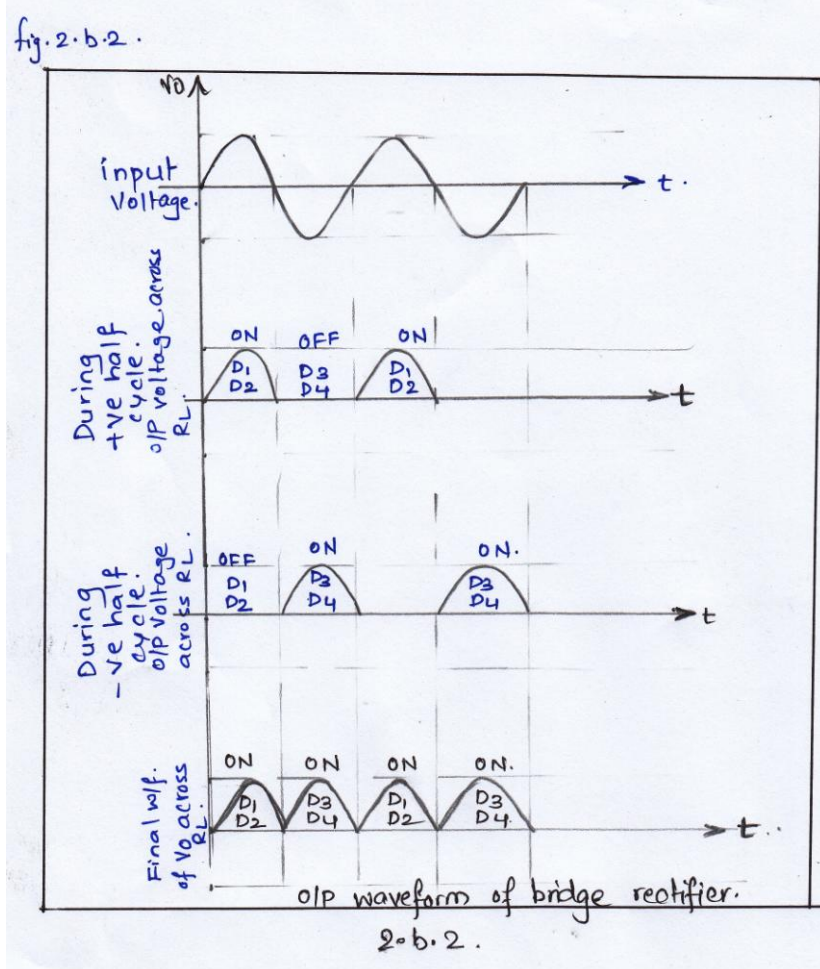 fig. 2.b.2.
vo
input
Voltage.
t.
During
+ve half
cycle.
O/P voltage across
RL.
ON OFF ON
D1 D3 D1
D2 D4 D2
t
During
-ve half
cycle.
O/P voltage
across RL.
OFF ON ON.
D1 D3 D3
D2 D4 D4
t
Final w/f.
of Vo across
RL.
ON ON ON ON.
D1 D3 D1 D3
D2 D4 D2 D4
t..
O/P waveform of bridge rectifier.
2.b.2.